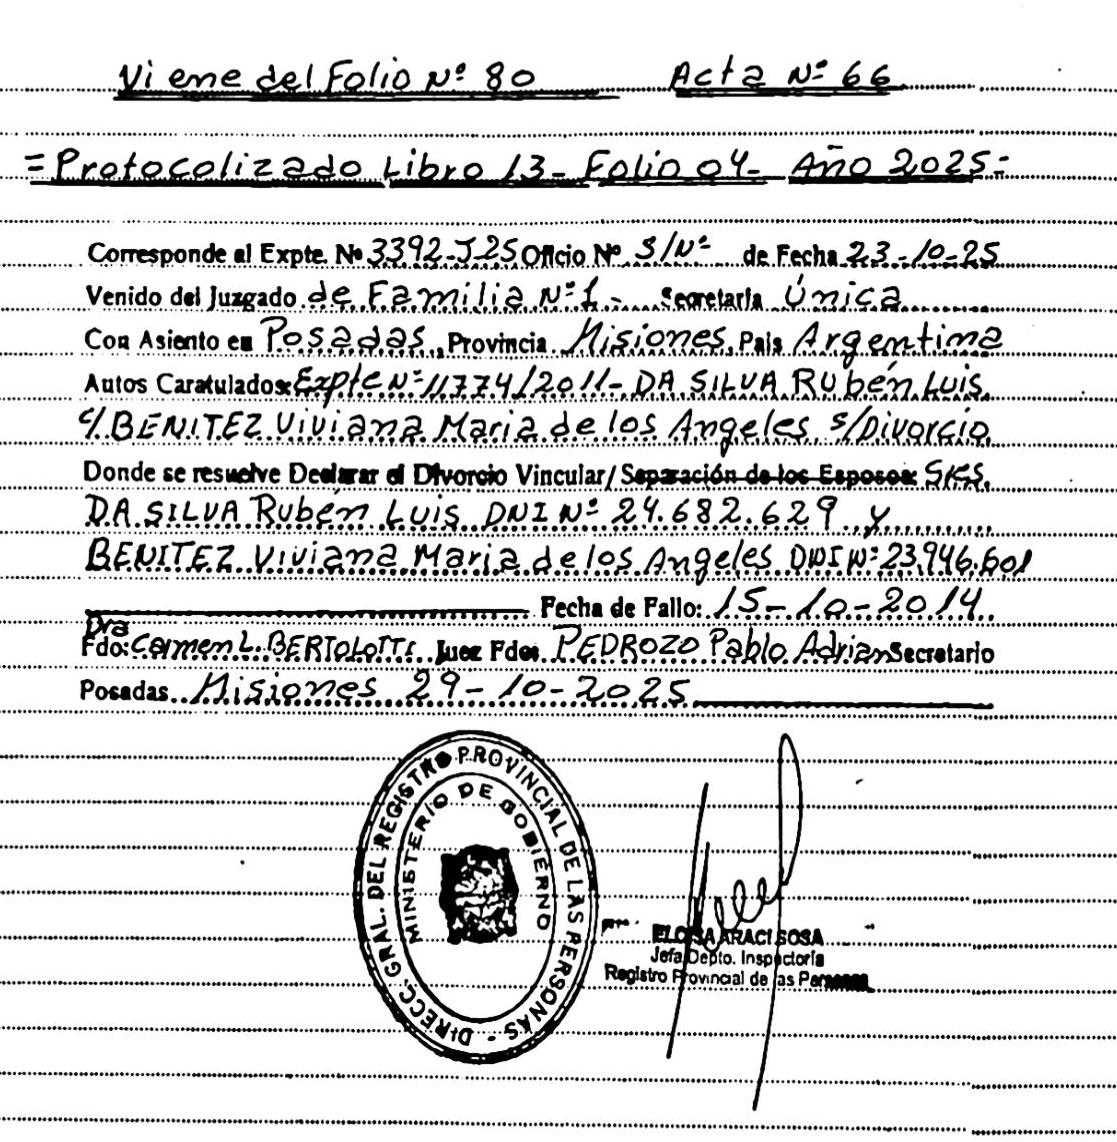 Viene del Folio Nº 80 Acta Nº 66
= Protocolizado Libro 13- Folio 04- Año 2025 =
Corresponde al Expte. Nº 3392-J-25 Oficio Nº S/Nº de Fecha 23-10-25
Venido del Juzgado de Familia Nº 1- Secretaría Única
Con Asiento en Posadas, Provincia Misiones, País Argentina
Autos Caratulados: Expte Nº 11774/2011- DA SILVA Rubén Luis
c/ BENITEZ Viviana Maria de los Angeles s/Divorcio
Donde se resuelve Declarar el Divorcio Vincular/ Separación de los Esposos: Sres.
DA SILVA Rubén Luis DNI Nº 24.682.629 y
BENITEZ Viviana Maria de los Angeles DNI Nº 23.946.601
Fecha de Fallo: 15-10-2014
Dra
Fdo: Carmen L. BERTOLOTTI Juez Fdo: PEDROZO Pablo Adrian Secretario
Posadas Misiones 29-10-2025
DIRECC. GRAL. DEL REGISTRO PROVINCIAL DE LAS PERSONAS -
MINISTERIO DE GOBIERNO
ELOISA ARACI SOSA
Jefa Depto. Inspectoría
Registro Provincial de las Personas